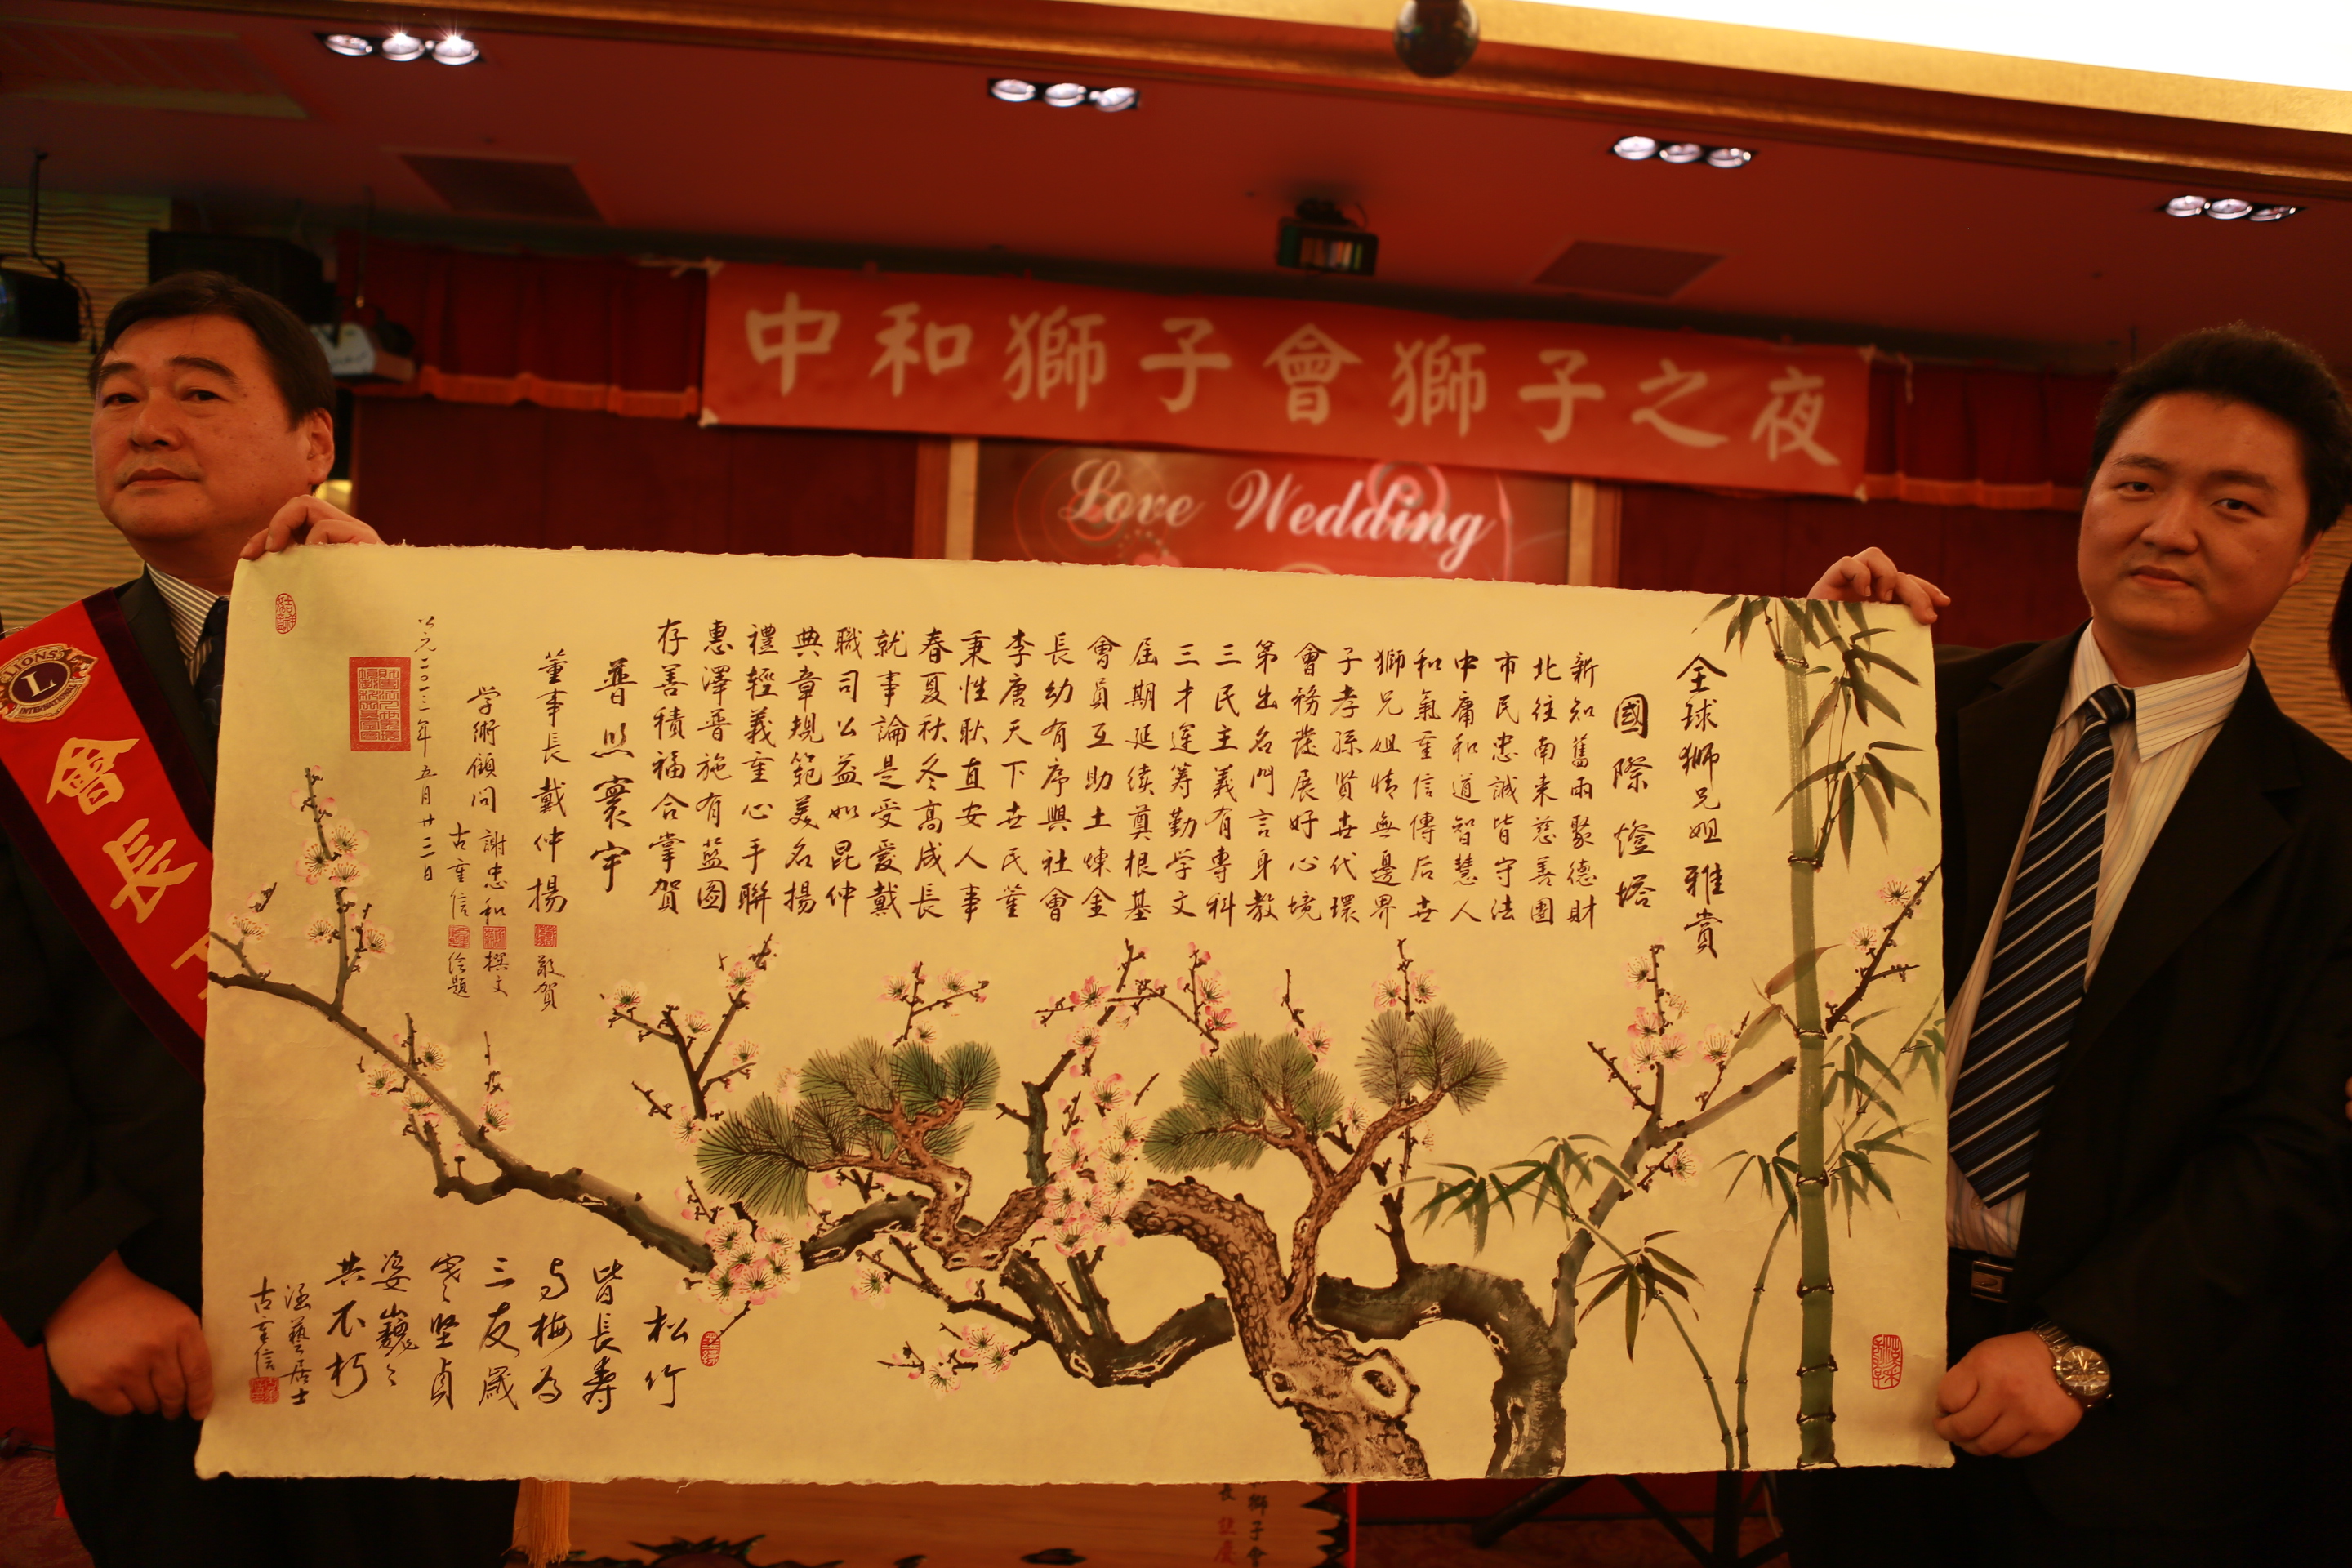 中和獅子會獅子之夜
Love Wedding
LIONS
L
INTERNATIONAL
會長
全球獅兄姐雅賞
國際燈塔
新知舊雨聚德財
北往南来慈善團
市民忠誠皆守法
中庸和道智慧人
和氣重信傳后世
獅兄姐情無邊界
子孝孫賢世代環
會務發展好心境
第出名門言身教
三民主義有專科
三才運筹勤学文
屆期延续奠根基
會員互助土煉金
長幼有序興社會
李唐天下世民董
秉性耿直安人事
春夏秋冬高成長
就事論是受愛戴
職司公益如昆仲
典章規範美名揚
禮輕義重心手聯
惠澤普施有藍图
存善積福合掌賀
普照寰宇
董事長戴仲揚敬賀
学術顧问謝忠和撰文
古重信绘題
公元二〇一三年五月廿三日
松竹
皆長壽
与梅为
三友歲
寒堅貞
姿巍巍
共不朽
涵藝居士
古重信
獅子會
長